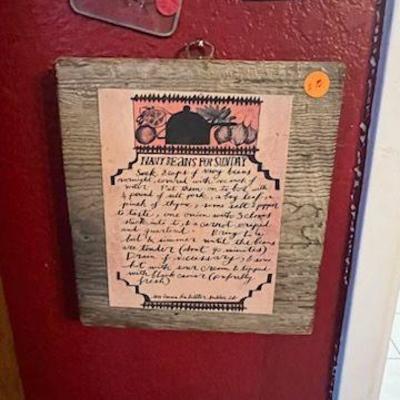 NAVY BEANS FOR SUNDAY
Soak 2 cups of navy beans
overnight, covered with an inch of
water. Put them on to boil with
½ pound of salt pork, a bay leaf, a
pinch of thyme, some salt & pepper
to taste, one onion with 3 cloves
stuck into it, & a carrot scraped
and quartered. Bring to a
boil & simmer until the beans
are tender (about 90 minutes)
Drain if necessary, & serve
hot with sour cream & topped
with black caviar (preferably
fresh)